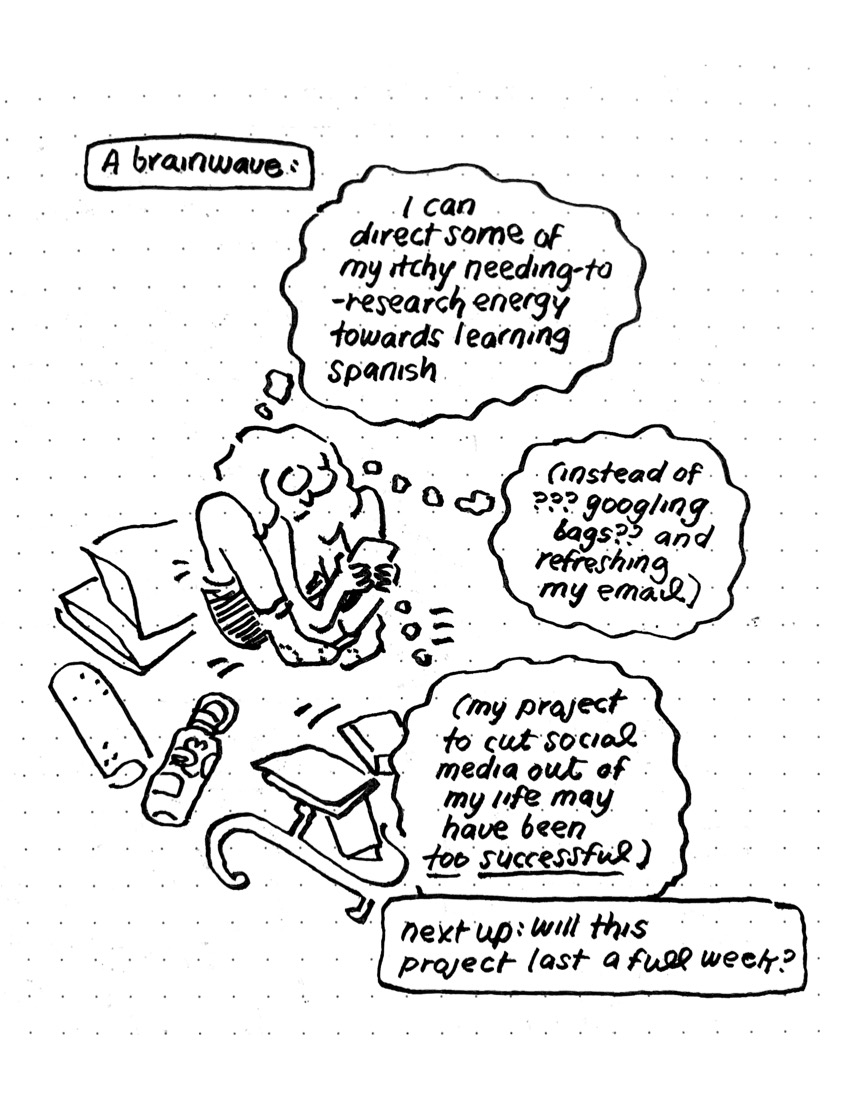 A brainwave:
I can
direct some of
my itchy needing-to
-research energy
towards learning
spanish
(instead of
??? googling
bags?? and
refreshing
my email)
(my project
to cut social
media out of
my life may
have been
too successful)
next up: will this
project last a full week?